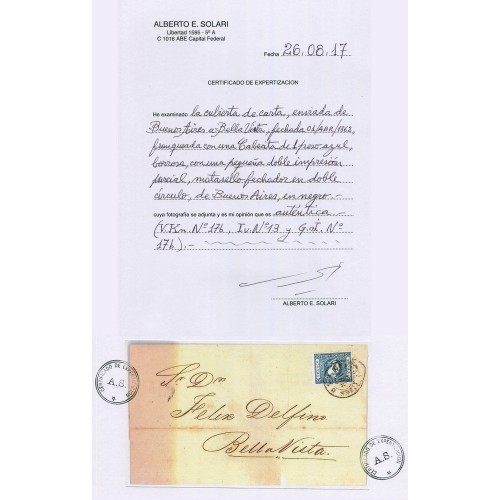 ALBERTO E. SOLARI
Libertad 1595 - 5º A
C 1016 ABE Capital Federal
Fecha 26.08.17
CERTIFICADO DE EXPERTIZACION
He examinado la cubierta de carta, enviada de
Buenos Aires a Bella Vista, fechada 01/ABR/1862,
franqueada con una Cabecita de 1 peso azul,
borrosa, con una pequeña doble impresión
parcial, matasello fechador en doble
círculo, de Buenos Aires, en negro.-
cuya fotografía se adjunta y es mi opinión que es auténtica.-
(V. Kn. Nº 17b, Iv. Nº 13 y G.J. Nº
17b).-
ALBERTO E. SOLARI
CERTIFICADO DE EXPERTIZACION
A.S.
Sr Dn
Felix Delfino
Bella Vista.
CERTIFICADO DE EXPERTIZACION
A.S.